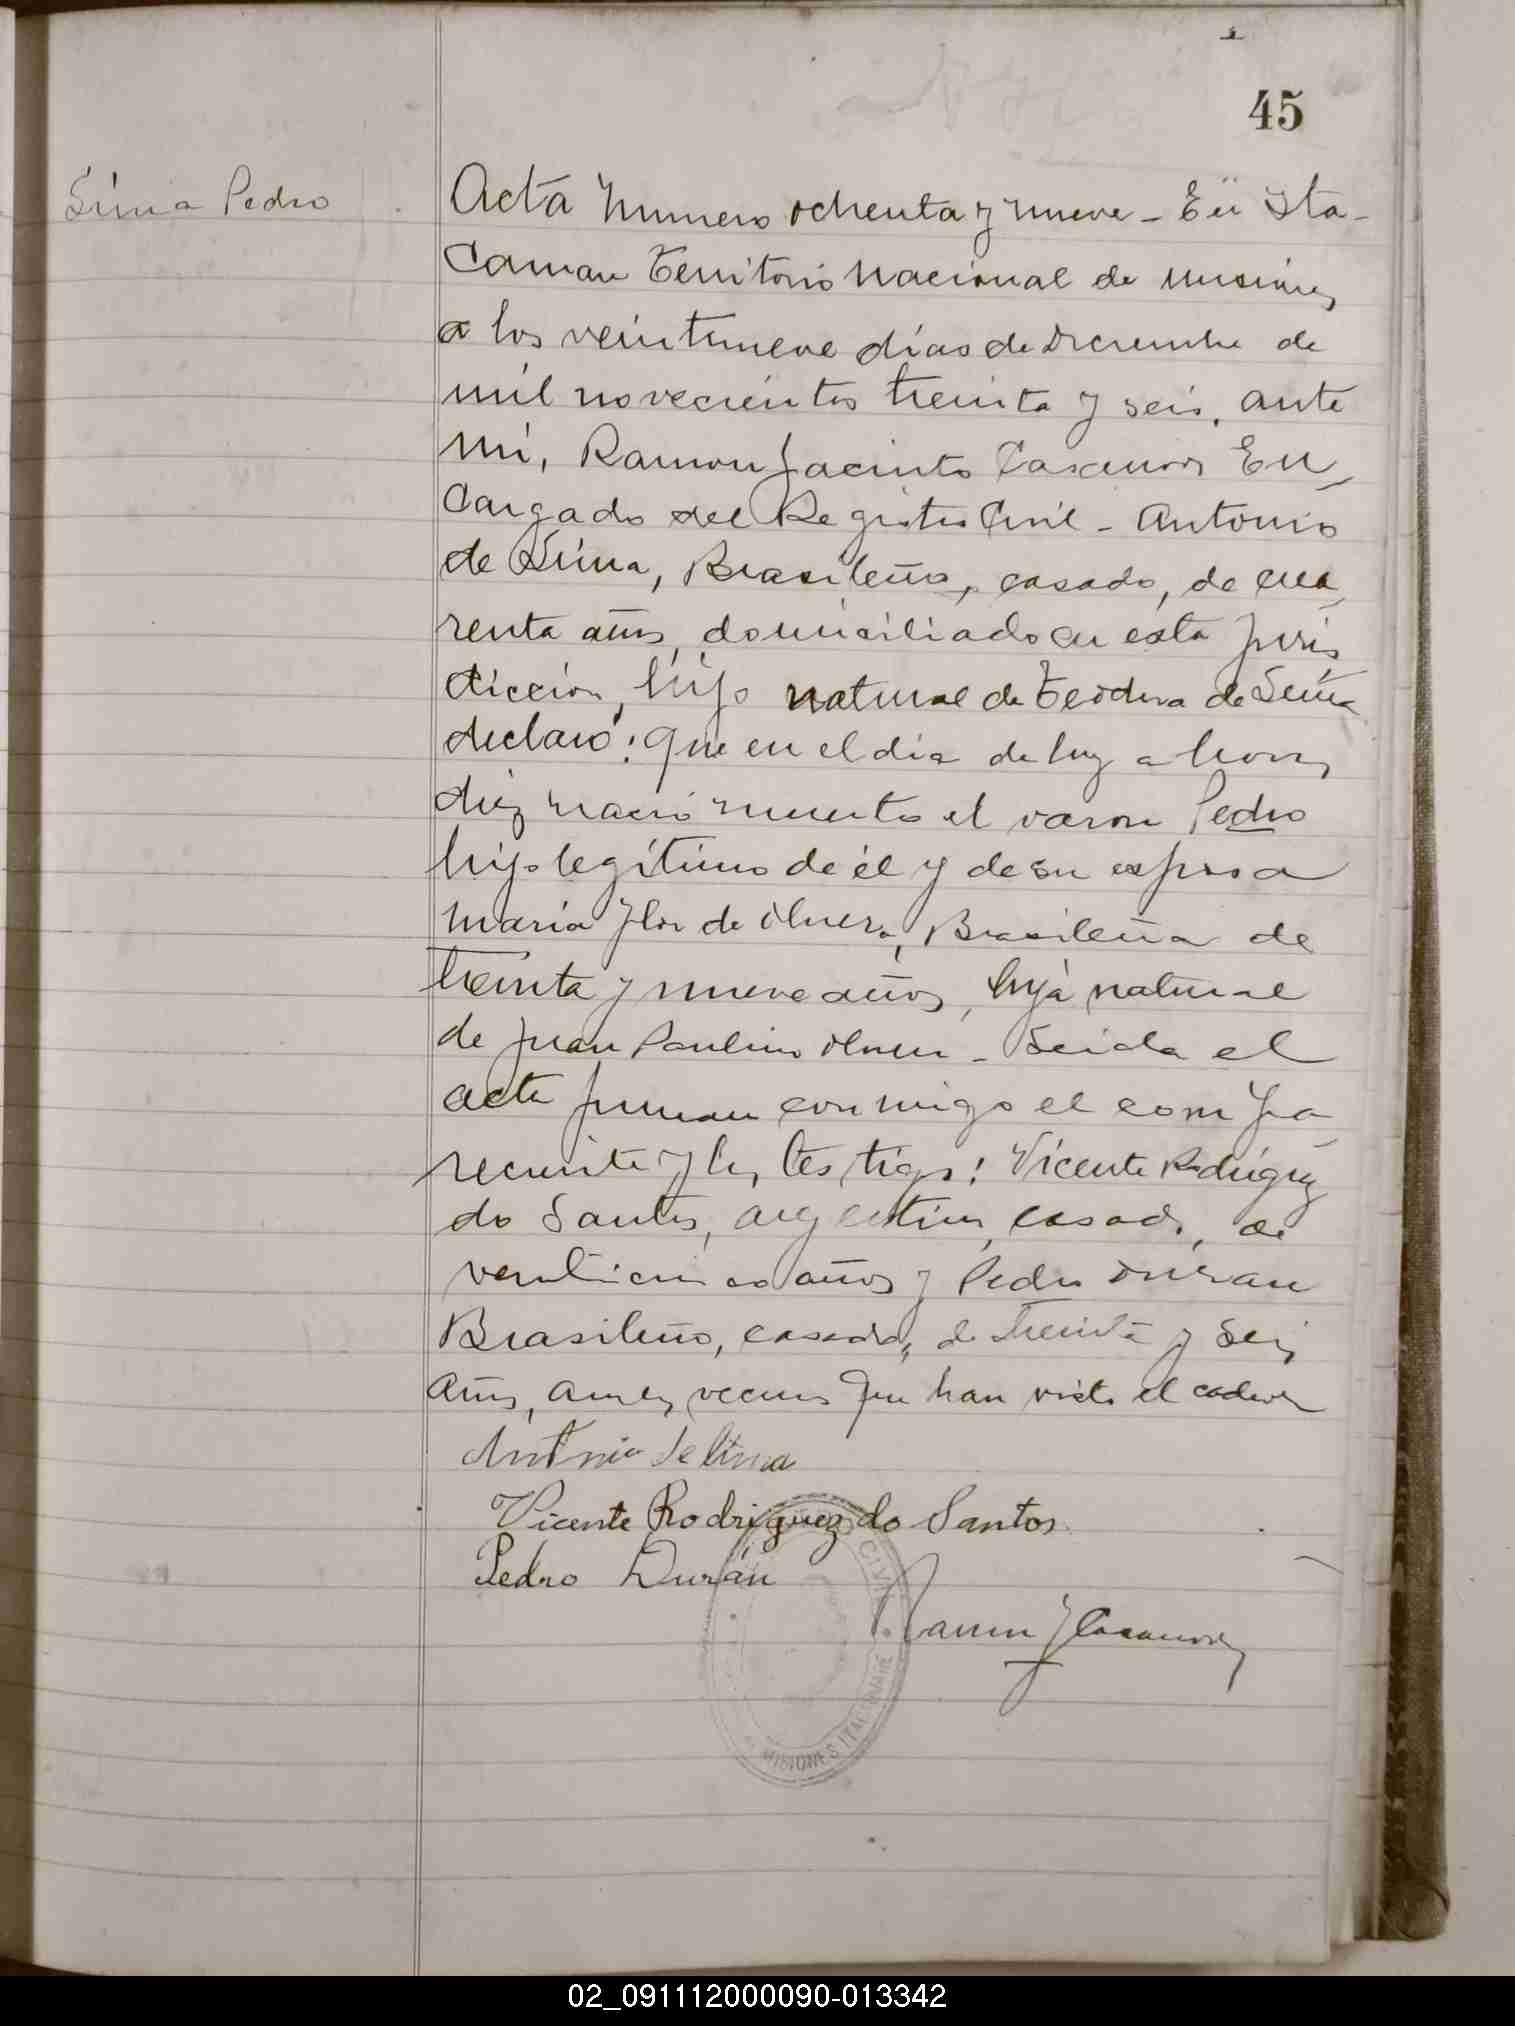 45
Lima Pedro
Acta Numero ochenta y nueve - En Ita-
caman Territorio Nacional de Misiones
a los veintinueve días de Diciembre de
mil novecientos treinta y seis, ante
mí, Ramon Jacinto Casanova En
cargado del Registro Civil - Antonio
de Lima, Brasileño, casado, de cua
renta años, domiciliado en esta juris
dicción, hijo natural de Teodora de Lima
declaró: Que en el día de hoy a horas
diez nació muerto el varon Pedro
hijo legítimo de él y de su esposa
María Flor de Olivera, Brasileña de
treinta y nueve años, hija natural
de Juan Paulino Oliver - Leida el
acta firman conmigo el compa
reciente y los testigos: Vicente Rodriguez
do Santos, argentino, casado, de
venticinco años y Pedro Duran
Brasileño, casado, de treinta y seis
años, ambos vecinos que han visto el cadaver
Antonio de Lima
Vicente Rodriguez do Santos
Pedro Durán
Ramon J Casanova
CIVIL
MISIONES ITACARUARE
02_091112000090-013342